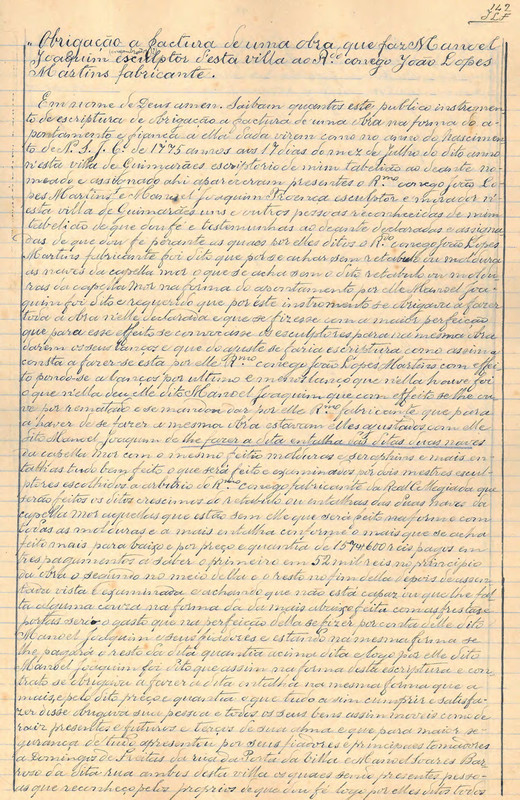 142
Obrigação a factura de uma obra que faz Manoel
Joaquim esculptor d'esta villa ao R.mo conego João Lopes
Martins fabricante.
Em nome de Deus amen. Saibam quantos este publico instrumen
to de escriptura de obrigação a factura de uma obra na forma do a
pontamento e fiança a ella dada virem como no anno do nascimento
de N. S. J. C. de 1775 annos aos 17 dias do mez de Julho do dito anno
n'esta villa de Guimarães escriptorio de mim tabelião ao deante no
meado e assignado ahi appareceram presentes o R.mo conego João Lo
pes Martins e Manoel Joaquim Proença esculptor e morador n'
esta villa de Guimarães uns e outros pessoas reconhecidas de mim
tabelião de que dou fé e testemunhas ao deante declaradas e assigna
das de que dou fé perante as quaes por elle dito o R.mo conego João Lopes
Martins fabricante foi dito que por se achar sem retabulo ou moldura
as naves da capella mor o que se acha sem o dito retabulo ou moldu
ras da capella mor na forma do apontamento por elle Manoel Joa
quim foi dito e requerido que por este instrumento se obrigava a fazer
toda a obra nella declarada e que se fizesse com a maior perfeição
que para esse effeito se convocasse os esculptores para na mesma obra
darem os seus lanços e que do ajuste se faria escriptura como assim
consta a fazer se esta por elle R.mo conego João Lopes Martins com effei
to pondo-se a lanços por ultimo e menor lanço que nella houve foi
o que nella deu elle dito Manoel Joaquim que com effeito se lhe ou
ve por rematado e se mandou dar por elle R.mo fabricante que para
a haver de se fazer a mesma obra estavam elles ajustados com elle
dito Manoel Joaquim de lhe fazer a dita entalha das ditas duas naves
da capella mor com o mesmo feitio molduras e seraphins e mais en
talhias tudo bem feito o que será feito e examinado por dois mestres escul
ptores escolhidos a arbitrio do R.mo conego fabricante da Real Collegiada que
serão feitos os ditos crescimos do retabulo ou entalhas das duas naves da
capella mor aquellas que estão sem elle que será feito na forma com
todas as molduras e a mais entalha conforme o mais que se acha
feito mais para baixo e por preço e quantia de 157$600 reis pagos em
tres pagamentos a saber o primeiro em 52 mil reis no principio
da obra o segundo no meio della e o resto no fim della depois de assen
tada vista e examinada e achando que não está capaz ou que lhe fal
ta alguma couza na forma da da mais abaixo feita com as frestas e
portas será o gasto que na perfeição della se fizer por conta delle dito
Manoel Joaquim e seus fiadores e estando na mesma forma se
lhe pagará o resto da dita quantia acima dita e logo por elle dito
Manoel Joaquim foi dito que assim na forma desta escriptura e con
trato se obrigava a fazer a dita entalha na mesma forma que a
mais e pelo dito preço e quantia o que tudo assim cumprir e satisfa
zer disse obrigava sua pessoa e todos os seus bens assim moveis como de
raiz presentes e futuros e terços de sua alma e que para mais se
gurança de tudo apresentou por seus fiadores e principaes tomadores
a Domingos de Freitas da rua da Porta da Villa e Manoel Soares Bar
roso da dita rua ambos desta villa os quaes sendo presentes pesso
as que reconheço pelos proprios de que dou fé logo por elles ditos todos